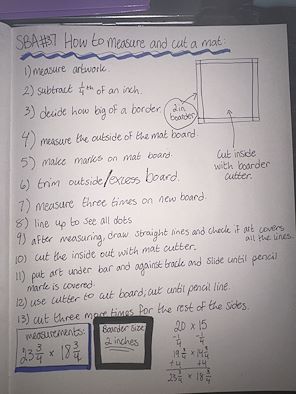 SBA#37 How to measure and cut a mat:
1) measure artwork.
2) subtract 1/4th of an inch.
3) decide how big of a border.
2in boarder
4) measure the outside of the mat board.
5) make marks on mat board.
cut inside
with boarder
cutter.
6) trim outside/excess board.
7) measure three times on new board.
8) line up to see all dots
9) after measuring, draw straight lines and check if art covers
all the lines.
10) cut the inside out with mat cutter.
11) put art under bar and against track and slide until pencil
mark is covered.
12) use cutter to cut board; cut until pencil line.
13) cut three more times for the rest of the sides.
measurements:
23 3/4 x 18 3/4
Boarder size
2 inches
20 x 15
-1/4 -1/4
19 3/4 x 14 3/4
+4 +4
23 3/4 x 18 3/4